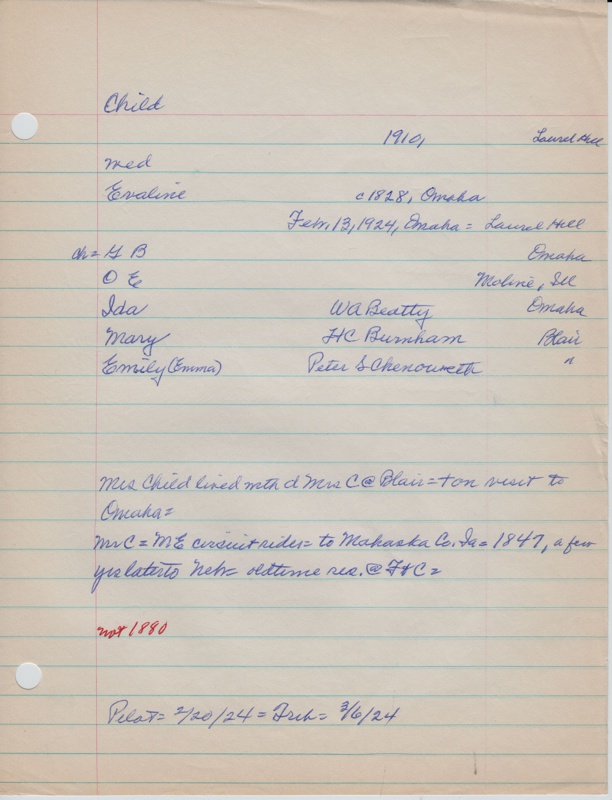 Child
1910, Laurel Hill
med
Evaline c1828, Omaha
Feb. 13, 1924, Omaha = Laurel Hill
ch = G B Omaha
O E Moline, Ill
Ida WA Beatty Omaha
Mary HC Burnham Blair
Emily (Emma) Peter S Chenoweth "
Mrs Child lived with d Mrs C @ Blair = + on visit to
Omaha =
Mr C = ME circuit rider = to Mahaska Co. Ia = 1847, a few
yrs later to Neb = oldtime res. @ Ft C =
not 1880
Pilot = 2/20/24 = Trib = 3/6/24